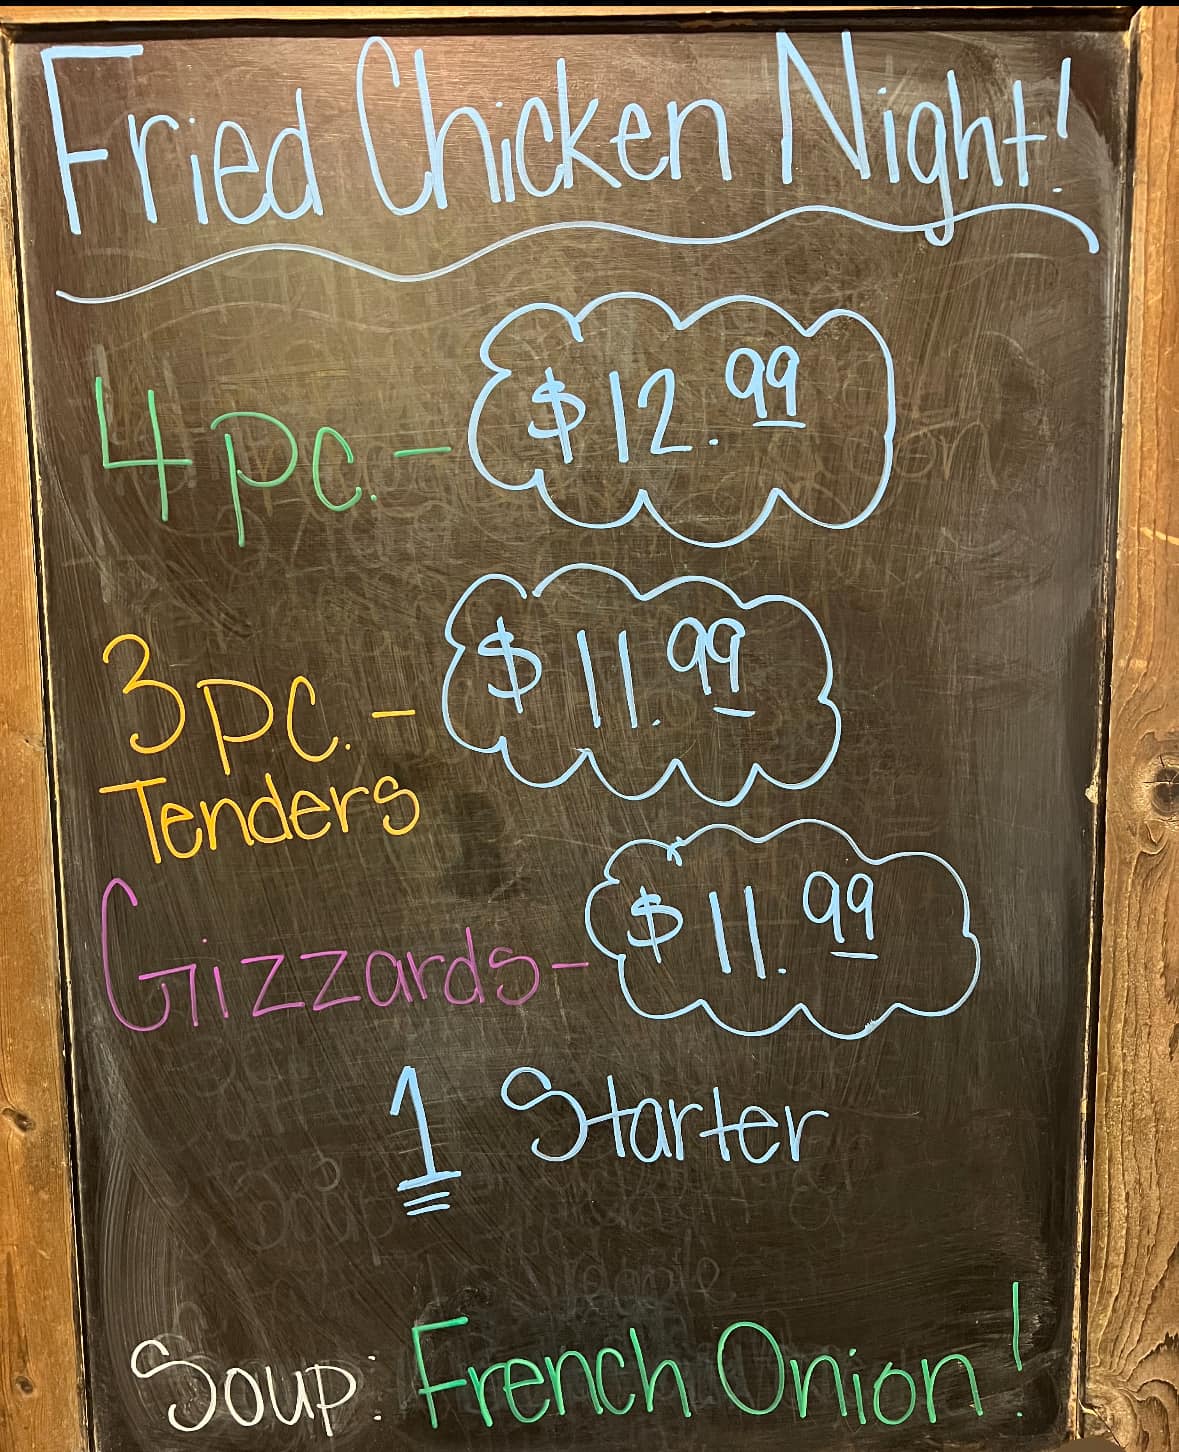 Fried Chicken Night!
4 pc. - $12.99
3 pc. - $11.99
Tenders
Gizzards - $11.99
1 Starter
Soup: French Onion!